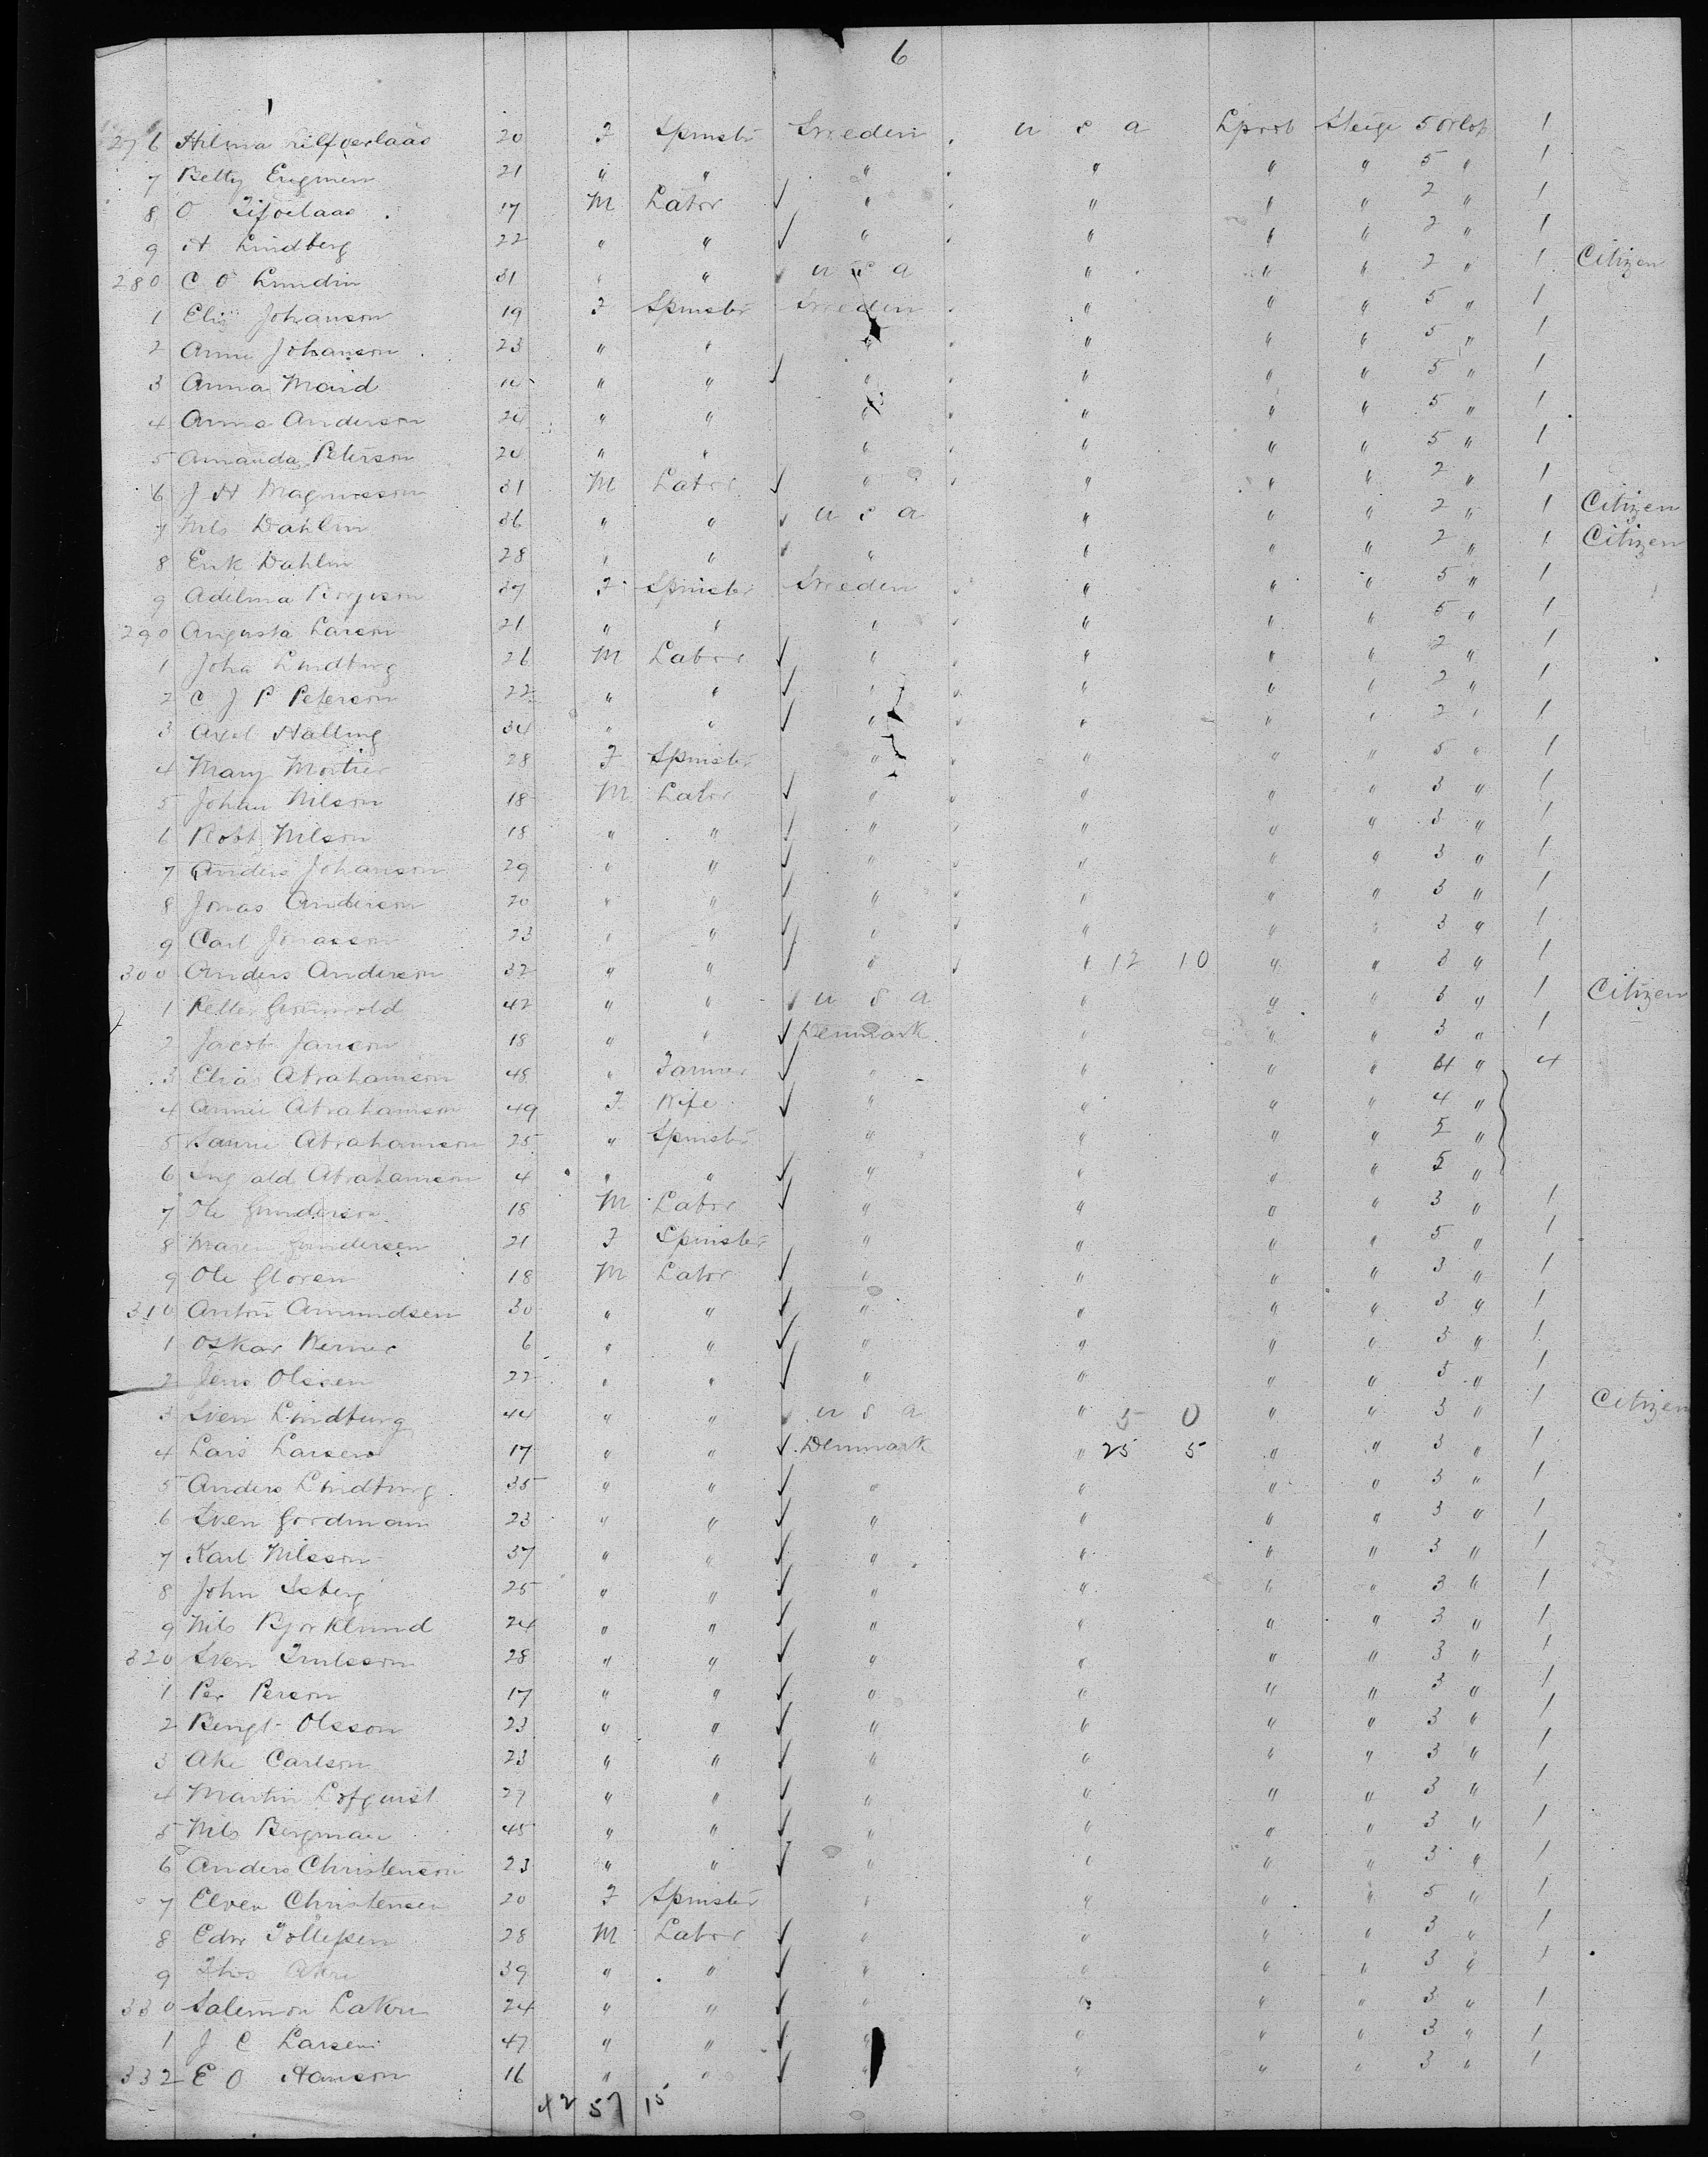 6
276 Hilma Silfverlaas 20 F Spinster Sweden U S A Lpool Steige 5 Orlop 1
7 Betty Engmen 21 " " " " " " 5 " 1
8 O Silfverlaas 17 M Labor ✓ " " " " 2 " 1
9 A Lindberg 22 " " ✓ " " " " 2 " 1
280 C O Lundin 31 " " ✓ U S A " " " 2 " 1 Citizen
1 Elis Johanson 19 F Spinster Sweden " " " 5 " 1
2 Anna Johanson 23 " " " " " " 5 " 1
3 Anna Maid " " ✓ " " " " 5 " 1
4 Anna Anderson 24 " " " " " " 5 " 1
5 Amanda Peterson 20 " " " " " " 5 " 1
6 J A Magnusson 31 M Labor ✓ " " " " 2 " 1
7 Nils Dahlin 36 " " ✓ U S A " " " 2 " 1 Citizen
8 Erik Dahlin 28 " " ✓ " " " " 2 " 1 Citizen
9 Adelina 37 F Spinster Sweden " " " 5 " 1
290 Augusta Larson 21 " " " " " " 5 " 1
1 Joha Lindburg 26 M Labor ✓ " " " " 2 " 1
2 C J P Peterson 22 " " ✓ " " " " 2 " 1
3 Axel Halling 34 " " ✓ " " " " 2 " 1
4 Mary Mortier 28 F Spinster " " " " 5 " 1
5 Johan Nilson 18 M Labor ✓ " " " " 3 " 1
6 Robt Nilson 18 " " ✓ " " " " 3 " 1
7 Anders Johanson 29 " " ✓ " " " " 3 " 1
8 Jonas Anderson 20 " " ✓ " " " " 3 " 1
9 Carl Jonasson 23 " " ✓ " " " " 3 " 1
300 Anders Anderson 32 " " ✓ " " 12 10 " " 3 " 1
1 Petter Gronwold 42 " " ✓ U S A " " " 3 " 1 Citizen
2 Jacob Janson 18 " " ✓ Denmark " " " 3 " 1
3 Elias Abrahamson 48 " Farmer ✓ " " " " 4 " 4
4 Annie Abrahamson 49 F Wife ✓ " " " " 4 "
5 Abrahamson 25 " Spinster " " " " 5 "
6 Ingvald Abrahamson 4 " " ✓ " " " " 5 "
7 Ole Gunderson 18 M Labor ✓ " " " " 3 " 1
8 Maren Gundersen 21 F Spinster " " " " 5 " 1
9 Ole Gloren 18 M Labor ✓ " " " " 3 " 1
310 Anton Amundsen 30 " " ✓ " " " " 3 " 1
1 Oskar Werner 6 " " ✓ " " " " 3 " 1
2 Jens Olssen 22 " " ✓ " " " " 3 " 1
3 Sven Lindburg 44 " " ✓ U S A " 5 0 " " 3 " 1 Citizen
4 Lars Larsen 17 " " ✓ Denmark " 25 5 " " 3 " 1
5 Anders Lindburg 35 " " ✓ " " " " 3 " 1
6 Sven Gordmann 23 " " ✓ " " " " 3 " 1
7 Karl Nilsson 37 " " ✓ " " " " 3 " 1
8 John Isberg 25 " " ✓ " " " " 3 " 1
9 Nils Bjorklund 24 " " ✓ " " " " 3 " 1
320 Sven Trulsson 28 " " ✓ " " " " 3 " 1
1 Per Person 17 " " ✓ " " " " 3 " 1
2 Bengt Olsson 23 " " ✓ " " " " 3 " 1
3 Ake Carlson 23 " " ✓ " " " " 3 " 1
4 Martin Lofquist 27 " " ✓ " " " " 3 " 1
5 Nils Bergman 45 " " ✓ " " " " 3 " 1
6 Anders Christenson 23 " " ✓ " " " " 3 " 1
7 Elven Christensen 20 F Spinster " " " " 5 " 1
8 Edw Tollefsen 28 M Labor ✓ " " " " 3 " 1
9 Thos Akre 39 " " ✓ " " " " 3 " 1
330 Salemon Lakon 24 " " ✓ " " " " 3 " 1
1 J C Larsen 47 " " ✓ " " " " 3 " 1
332 E O Hanson 16 " " ✓ " " " " 3 " 1
42 57 15